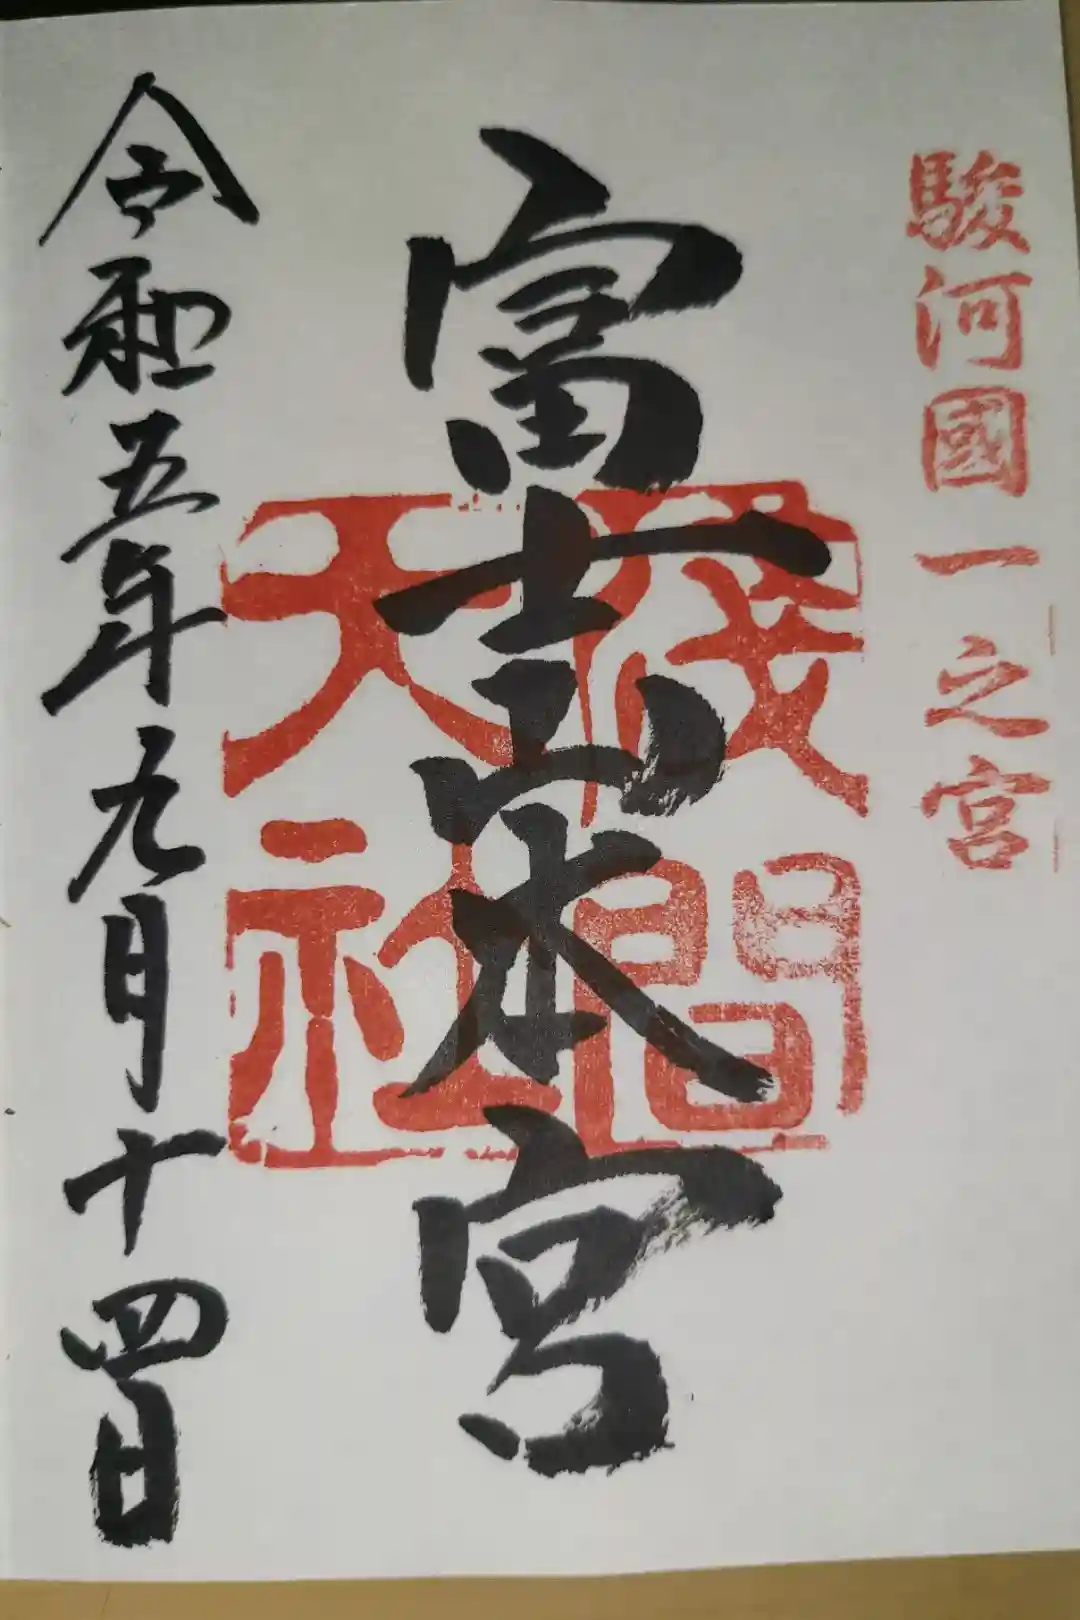 駿河國一之宮
富士山本宮
淺間
大社
令和五年九月十四日